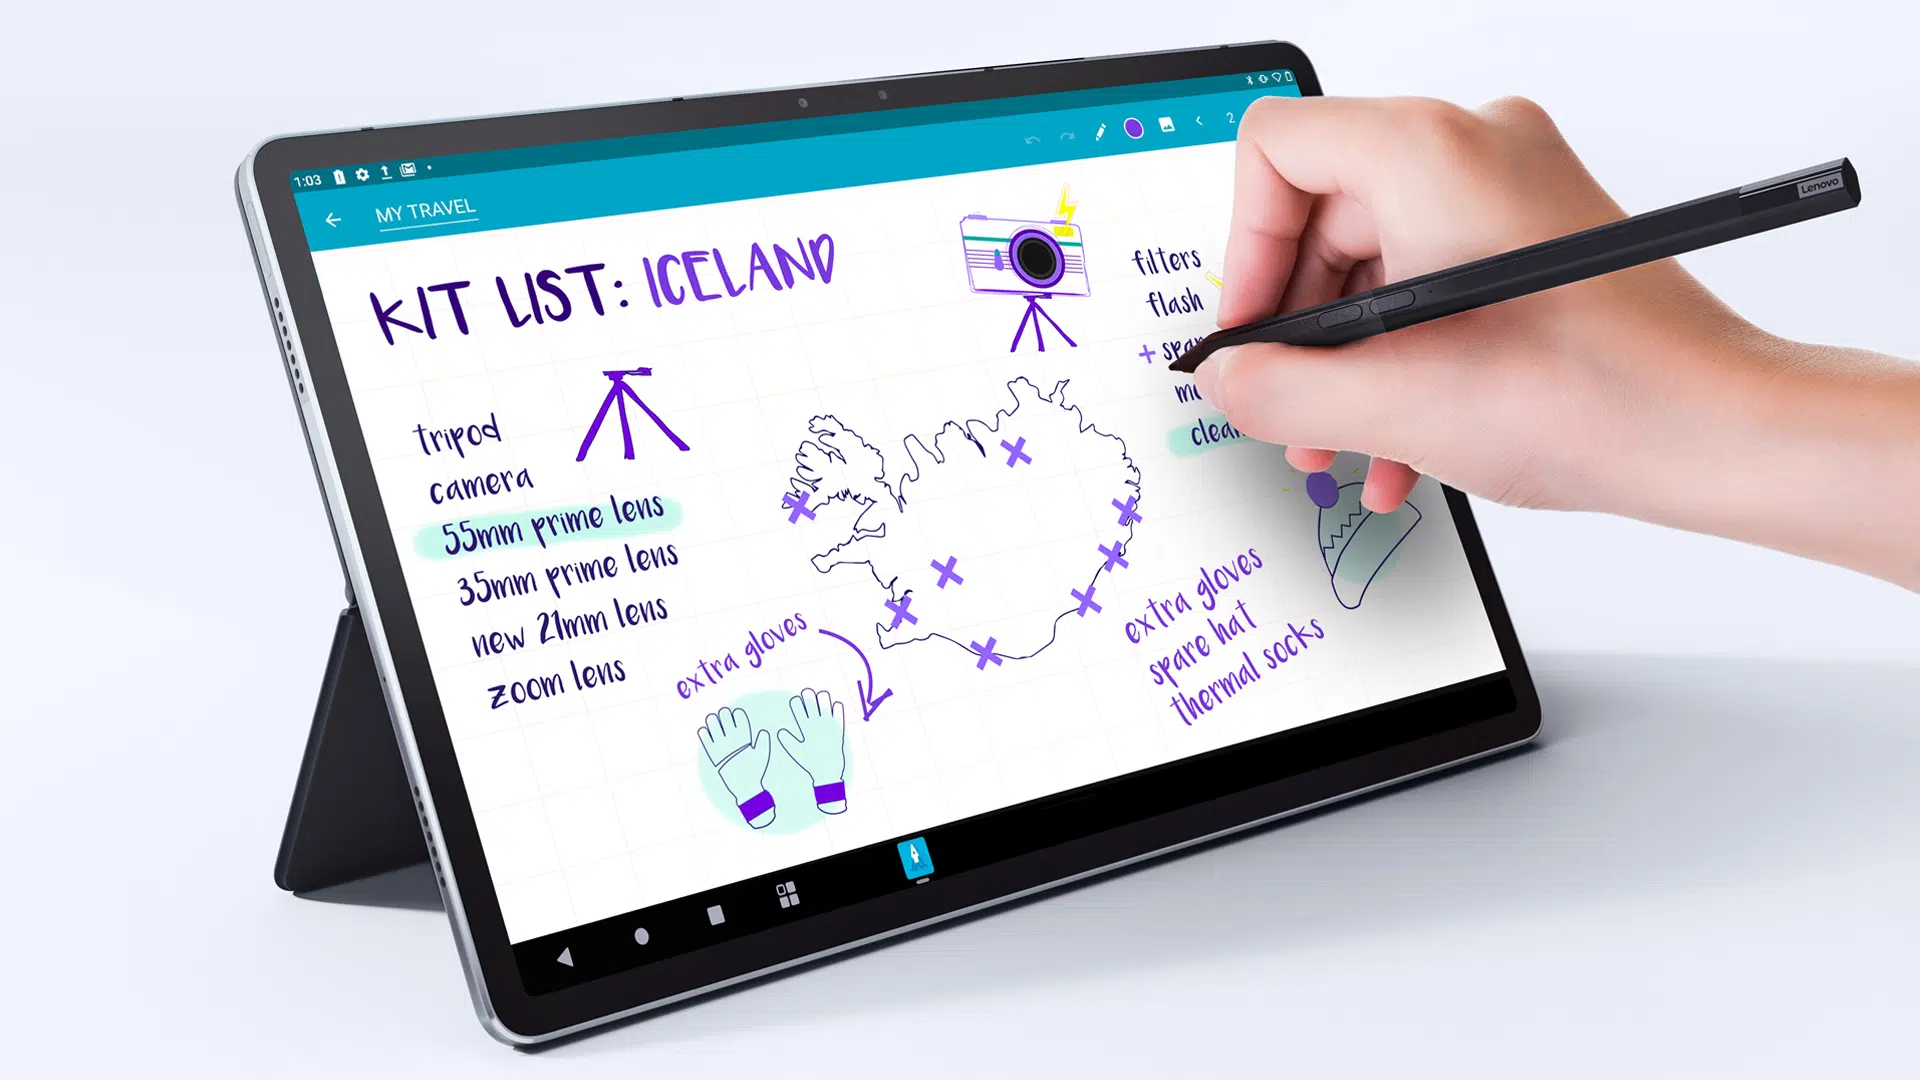 1:03
MY TRAVEL
2
KIT LIST: ICELAND
tripod
camera
55mm prime lens
35mm prime lens
new 21mm lens
zoom lens
extra gloves
filters
flash
+
extra gloves
spare hat
thermal socks
Lenovo